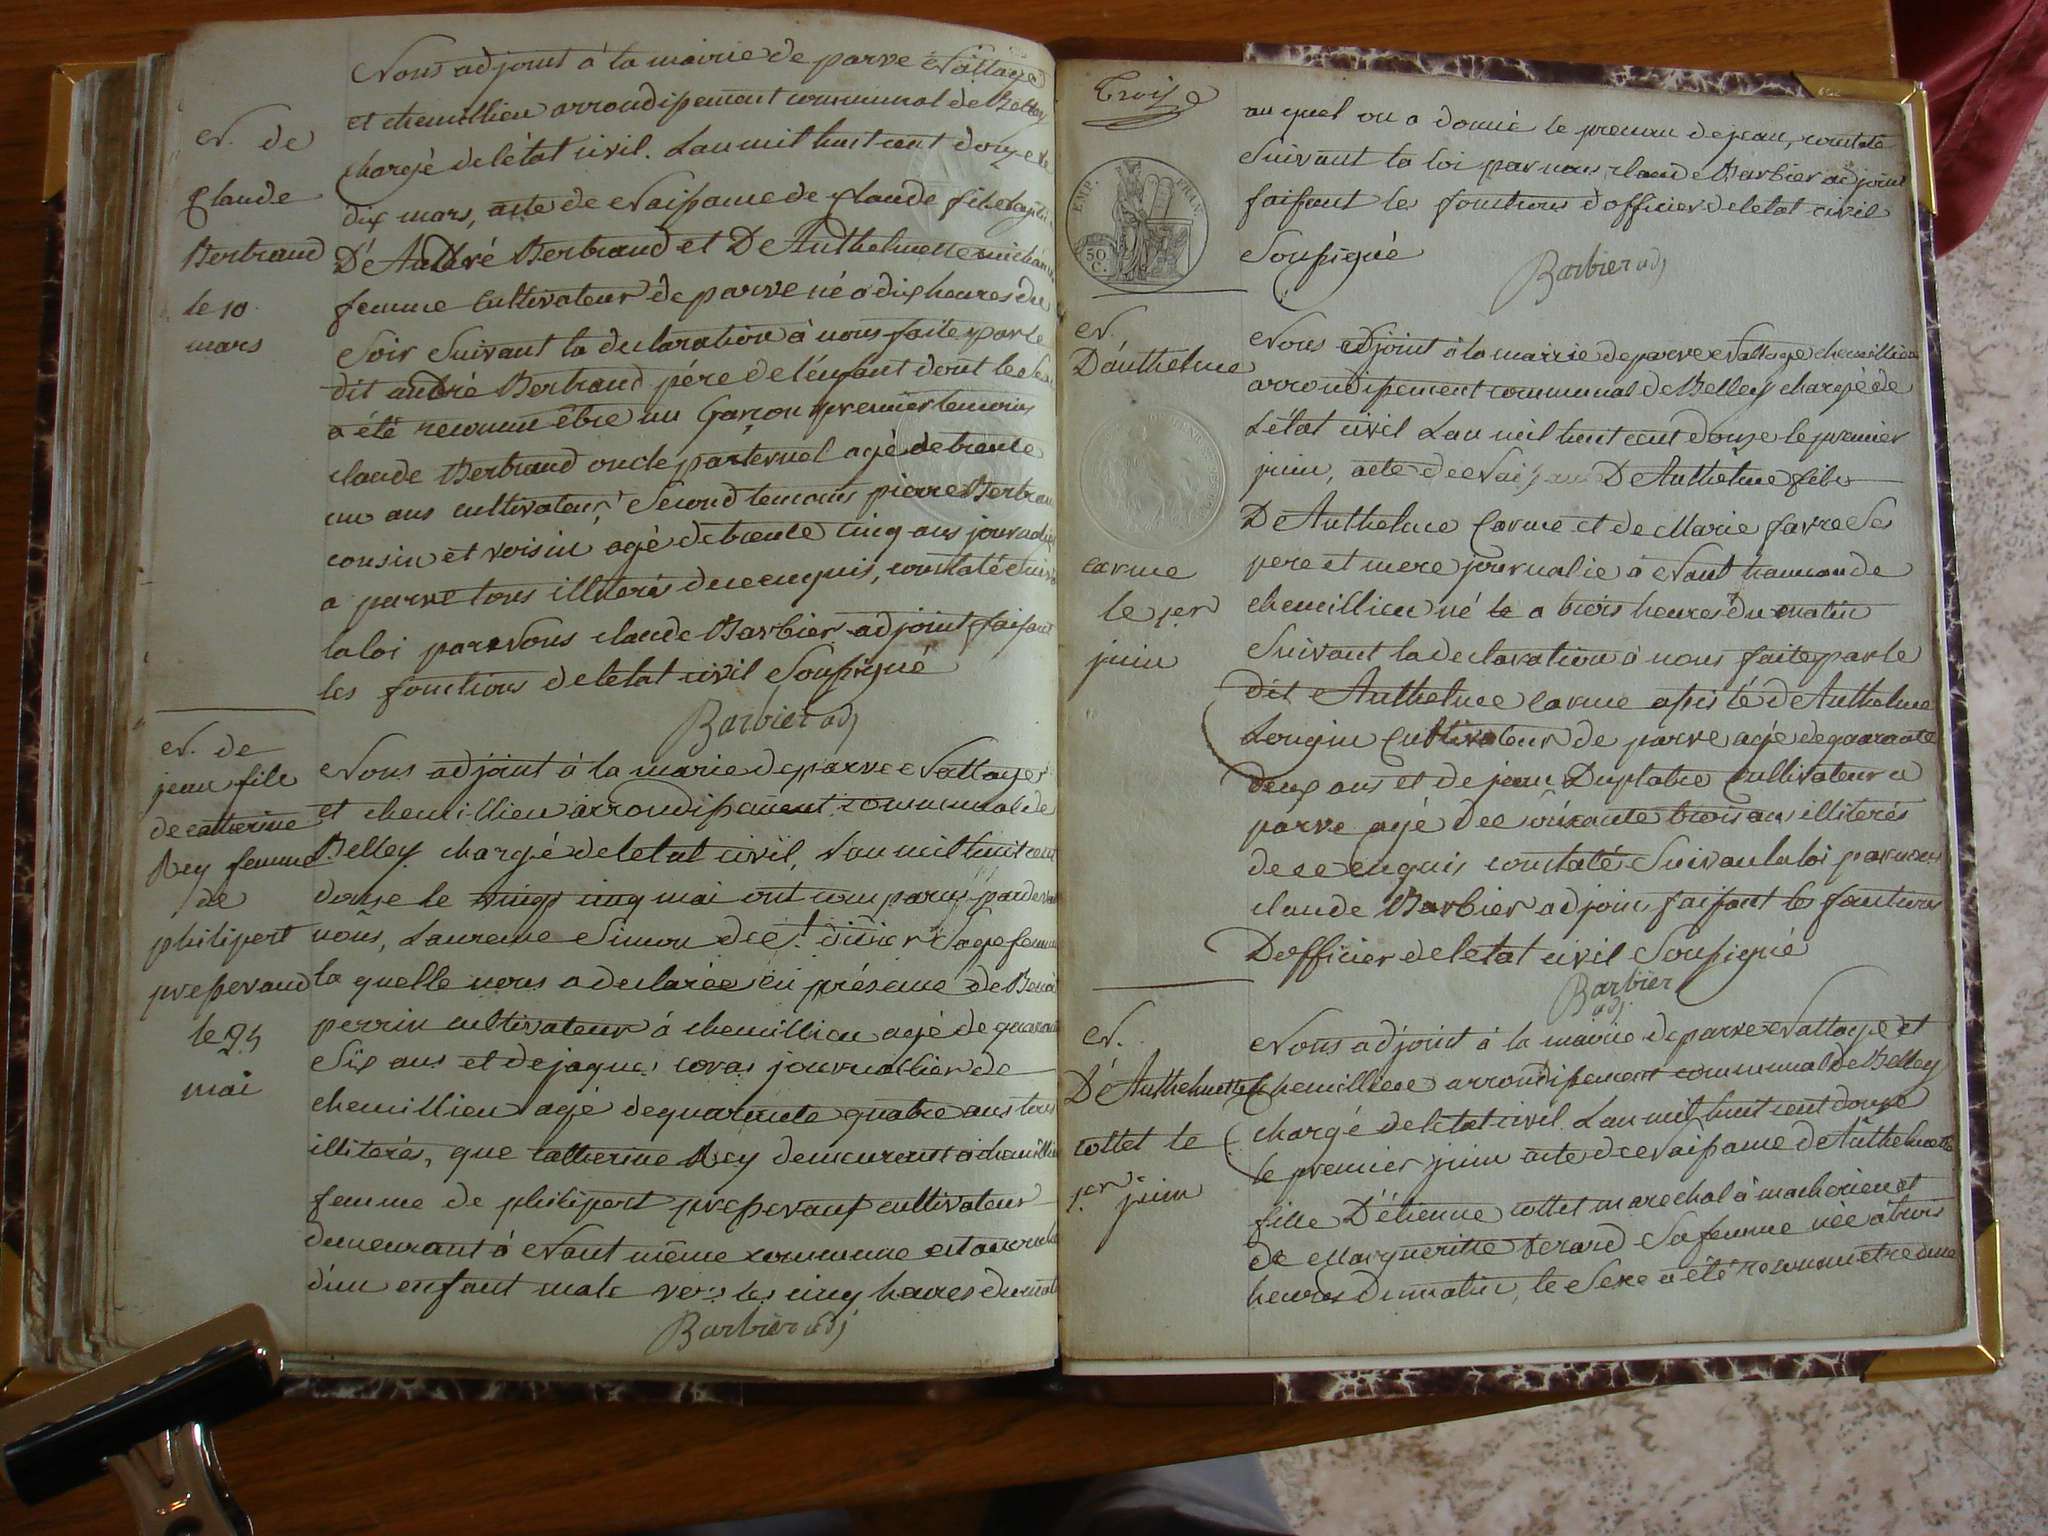 Nous adjoint à la mairie de parve Nattage
et chemillieu arrondissement communal de Belley
chargé de létat civil. Lan mil huit cent douze le
dix mars, acte de Naissance de Claude fils
D'André Bertrand et De Anthelmette
femme Cultivateur de parve né a dix heures du
Soir Suivant la declaration à nous faite par le
dit andré Bertrand pére de lénfant dont le
a été reconnu être un Garçon premier temoins
claude Bertrand oncle paternel agé de trente
un ans cultivateur Second temoins pierre Bertrand
cousin et voisin agé de trente cinq ans journalier
a parve tous illiterés de ce enquis, constaté
la loi par Nous claude Barbier adjoint faisant
les fonctions de létat civil Soussigné
Barbier adj
N. de
Claude
Bertrand
le 10
mars
Nous adjoint à la marie de parve Nattage
et chemillieu arrondissement communal de
Belley chargé de letat civil, Lan mil huit cent
douze le vingt cinq mai ont comparus
nous, Laurence Simon de St. didier Sage femme
la quelle nous a declarée en présence de
perrin cultivateur à chemillieu agé de quarante
Six ans et de jaques coras journallier de
chemillieu agé de quarante quatre ans tous
illiterés, que catherine Rey demeurent a chemillieu
femme de philipert cultivateur
demeurant à Nant même commune est
d'un enfant male vers les cinq heures du
Barbier adj
N. de
jean fils
de catherine
Rey femme
de
philipert
le 25
mai
Trois
au quel on a donné le prenom de jean, constaté
Suivant la loi par nous claude Barbier adjoint
faisant les fonctions d officier de létat civil
Soussigné
Barbier adj
EMP. FRAN.
50
C.
N.
D'anthelme
carme
le 1er
juin
Nous adjoint à la mairie de parve Nattage chemillieu
arrondissement communal de Belley chargé de
Létat civil Lan mil huit cent douze le premier
juin, acte de De Anthelme fils
De Anthelme Carme et de Marie favre Ses
pere et mere à Nant hameau de
chemillieu né le a trois heures du matin
Suivant la declaration à nous faite par le
dit Anthelme Carme de Anthelme
Longin Cultivateur de parve agé de quarante
deux ans et de jean Cultivateur a
parve agé de trois ans illiterés
de ce enquis constaté Suivant la loi par nous
claude Barbier adjoin faisant les fonctions
D officier de létat civil Soussigné
Barbier
adj
N.
D'Anthelmette
cottet le
1er juin
Nous adjoint à la mairie de parve Nattage et
Chemillieu arrondissement communal de Belley
chargé de létat civil Lan mil huit cent douze
le premier juin acte de Naissance de Anthelmette
fille D'étienne cottet marechal à et
de Margueritte Sa femme née à trois
heures du matin, le Sexe a été reconnu etre